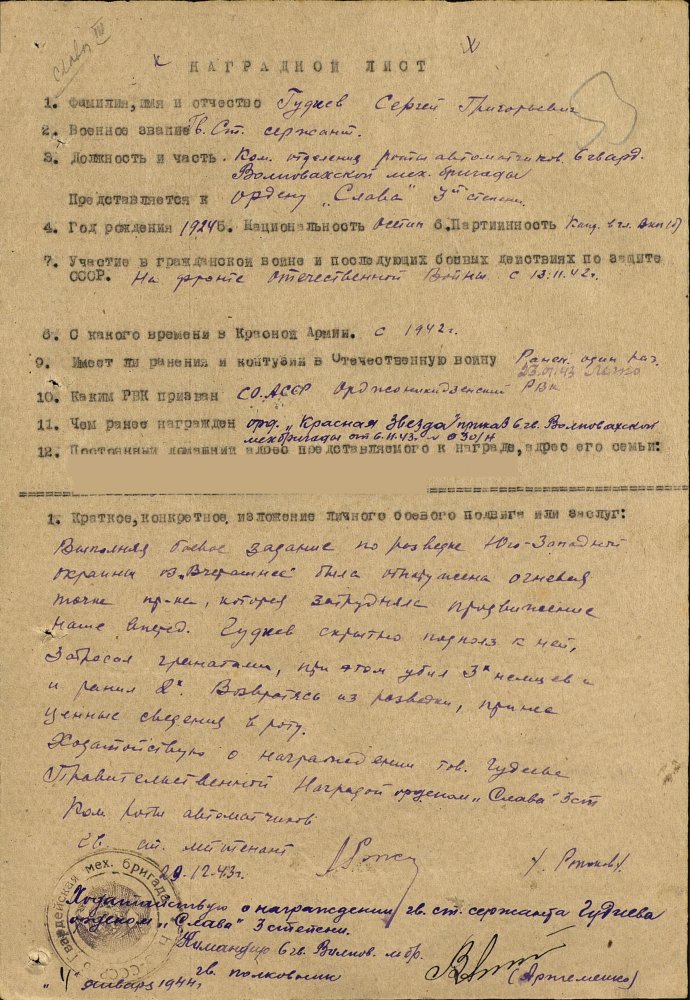 Слава III
НАГРАДНОЙ ЛИСТ
1. Фамилия,имя и отчество Гудиев Сергей Григорьевич
2. Военное звание Гв. Ст. сержант.
3. Должность и часть. Ком. отделения роты автоматчиков 6 гвард.
Волновахской мех. бригады
Представляется к ордену „Слава" 3й степени.
4. Год рождения 1924 5. Национальность Осетин 6. Партийность Канд. в чл. ВКП(б)
7. Участие в гражданской войне и последующих боевых действиях по защите
СССР. На фронте Отечественной Войны с 13.11.42г.
8. С какого времени в Красной Армии. с 1942г.
9. Имеет ли ранения и контузии в Отечественную войну Ранен один раз.
43 Легко
10. Каким РВК призван СО.АССР Орджоникидзенский РВК
11. Чем ранее награжден орд. „Красная Звезда" приказ 6 гв. Волновахской
мехбригады от 6.11.43г. № 030/н
12. Постоянный домашний адрес представляемого к награде,адрес его семьи:
1. Краткое,конкретное изложение личного боевого подвига или заслуг:
Выполняя боевое задание по разведке Юго-Западной
окраины „Вчерашнее" была обнаружена огневая
точка пр-ка, которая затрудняла продвижение
наше вперед. Гудиев скрытно подполз к ней,
забросал гранатами, при этом убил 3х немцев и
и ранил 2х. Возвратясь из разведки, принес
ценные сведения в роту.
Ходатайствую о награждении тов. Гудиева
Правительственной Наградой орденом „Слава" 3 ст
Ком. роты автоматчиков
Гв. ст. лейтенант
29.12.43г.
Гвардейская мех. бригада
Ходатайствую о награждении гв. ст. сержанта Гудиева
орденом „Слава" 3 степени.
Командир 6 гв. Волнов. мбр.
гв. полковник (Артеменко)
„4" января 1944г.